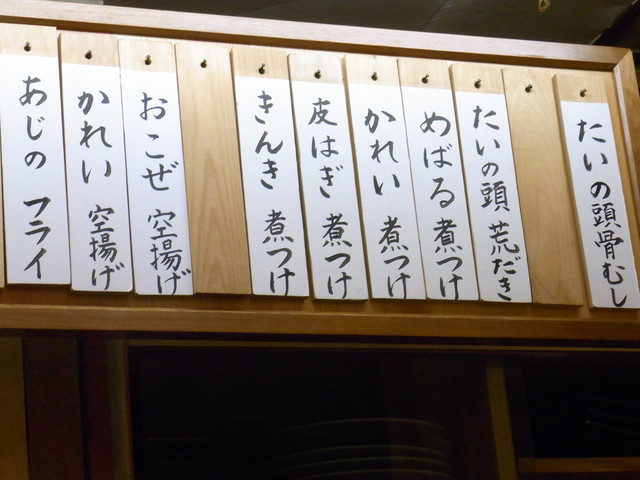 たいの頭骨むし
たいの頭 荒だき
めばる 煮つけ
かれい 煮つけ
皮はぎ 煮つけ
きんき 煮つけ
おこぜ 空揚げ
かれい 空揚げ
あじの フライ